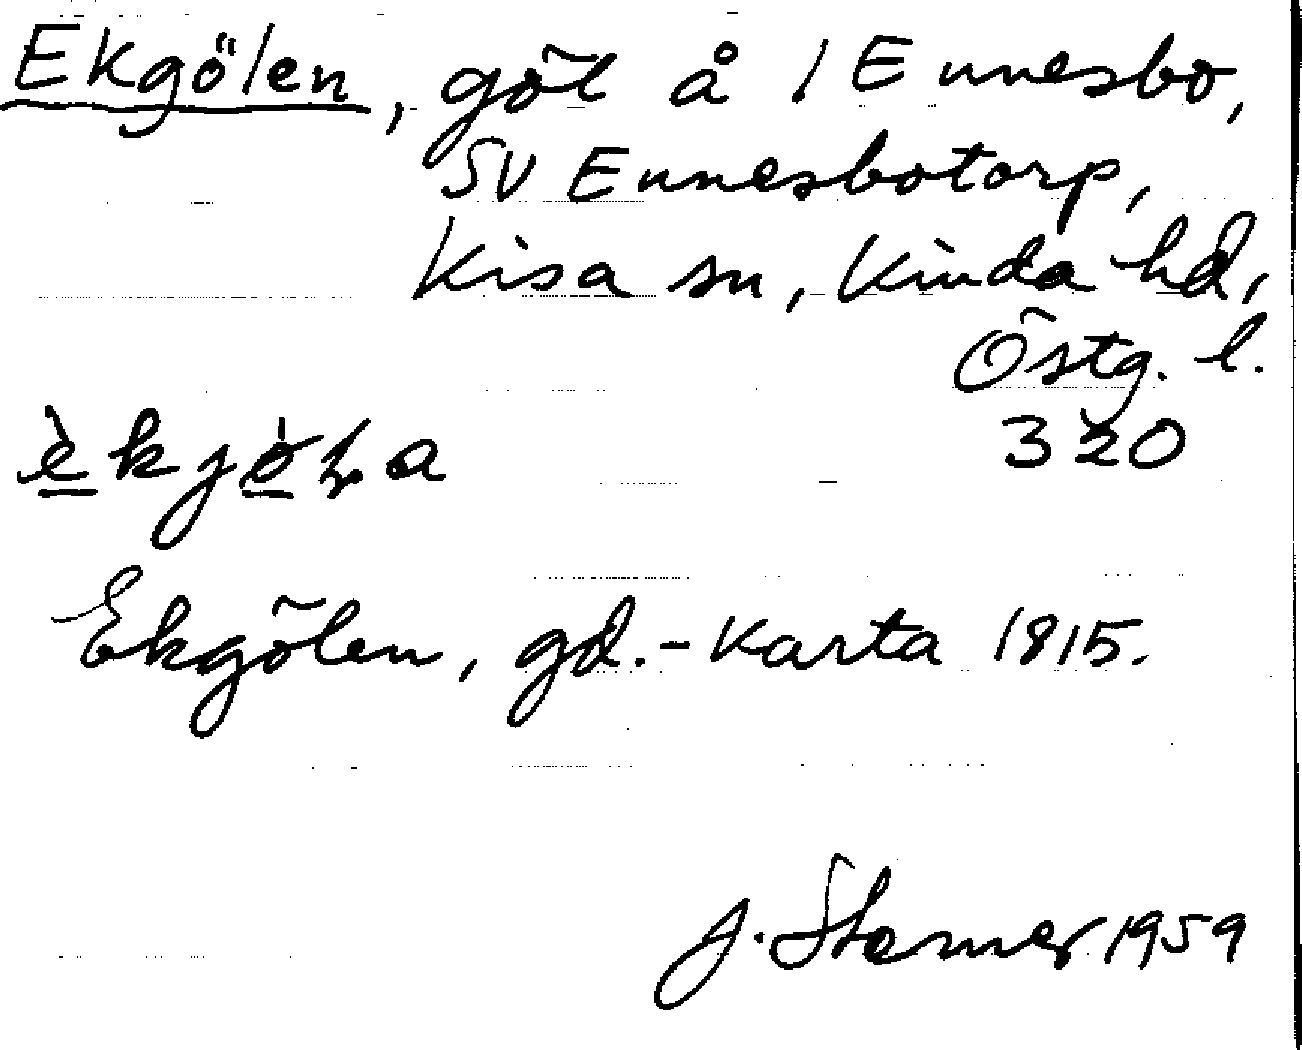 Ekgölen, göl å 1 Ennesbo,
SV Ennesbotorp,
Kisa sn, Kinda hd,
Östg. l.
320
Ekgölen, gd. - Karta 1815.
J. 1959